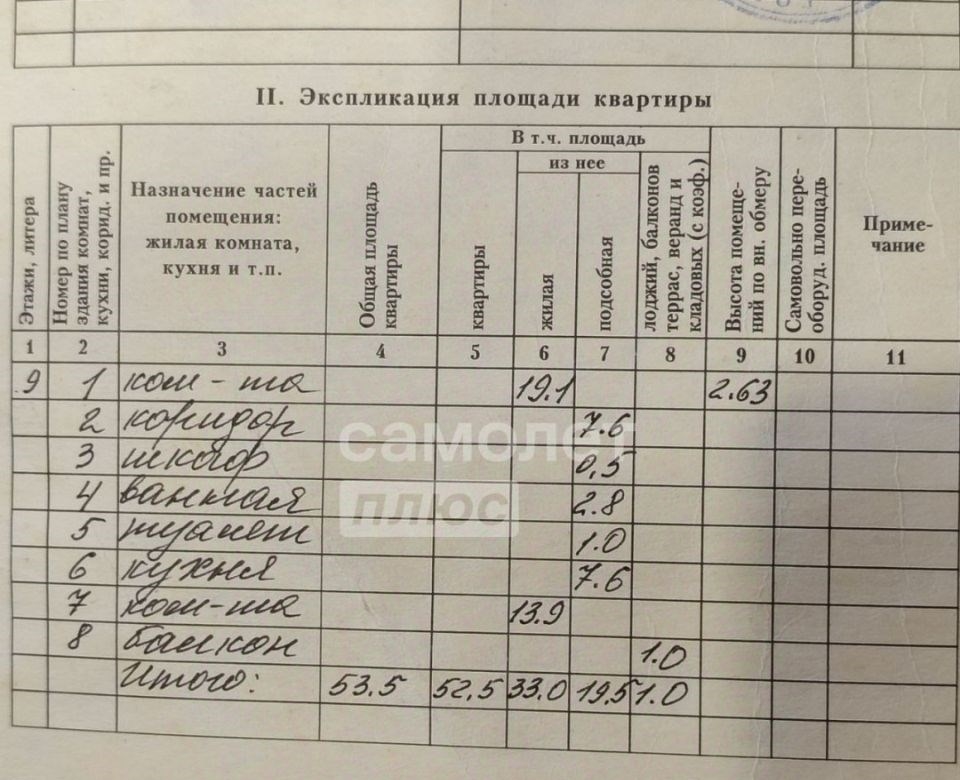 II. Экспликация площади квартиры
Этажи, литера
Номер по плану здания комнат, кухни, корид. и пр.
Назначение частей
помещения:
жилая комната,
кухня и т.п.
Общая площадь квартиры
В т.ч. площадь
квартиры
из нее
жилая
подсобная
лоджий, балконов террас, веранд и кладовых (с коэф.)
Высота помеще-ний по вн. обмеру
Самовольно пере-оборуд. площадь
Приме-
чание
1 2 3 4 5 6 7 8 9 10 11
9 1 ком-та 19.1 2.63
2 коридор 7.6
3 шкаф 0,5
4 ванная 2.8
5 туалет 1.0
6 кухня 7.6
7 ком-та 13.9
8 балкон 1.0
Итого: 53.5 52.5 33.0 19.5 1.0
самолет
плюс